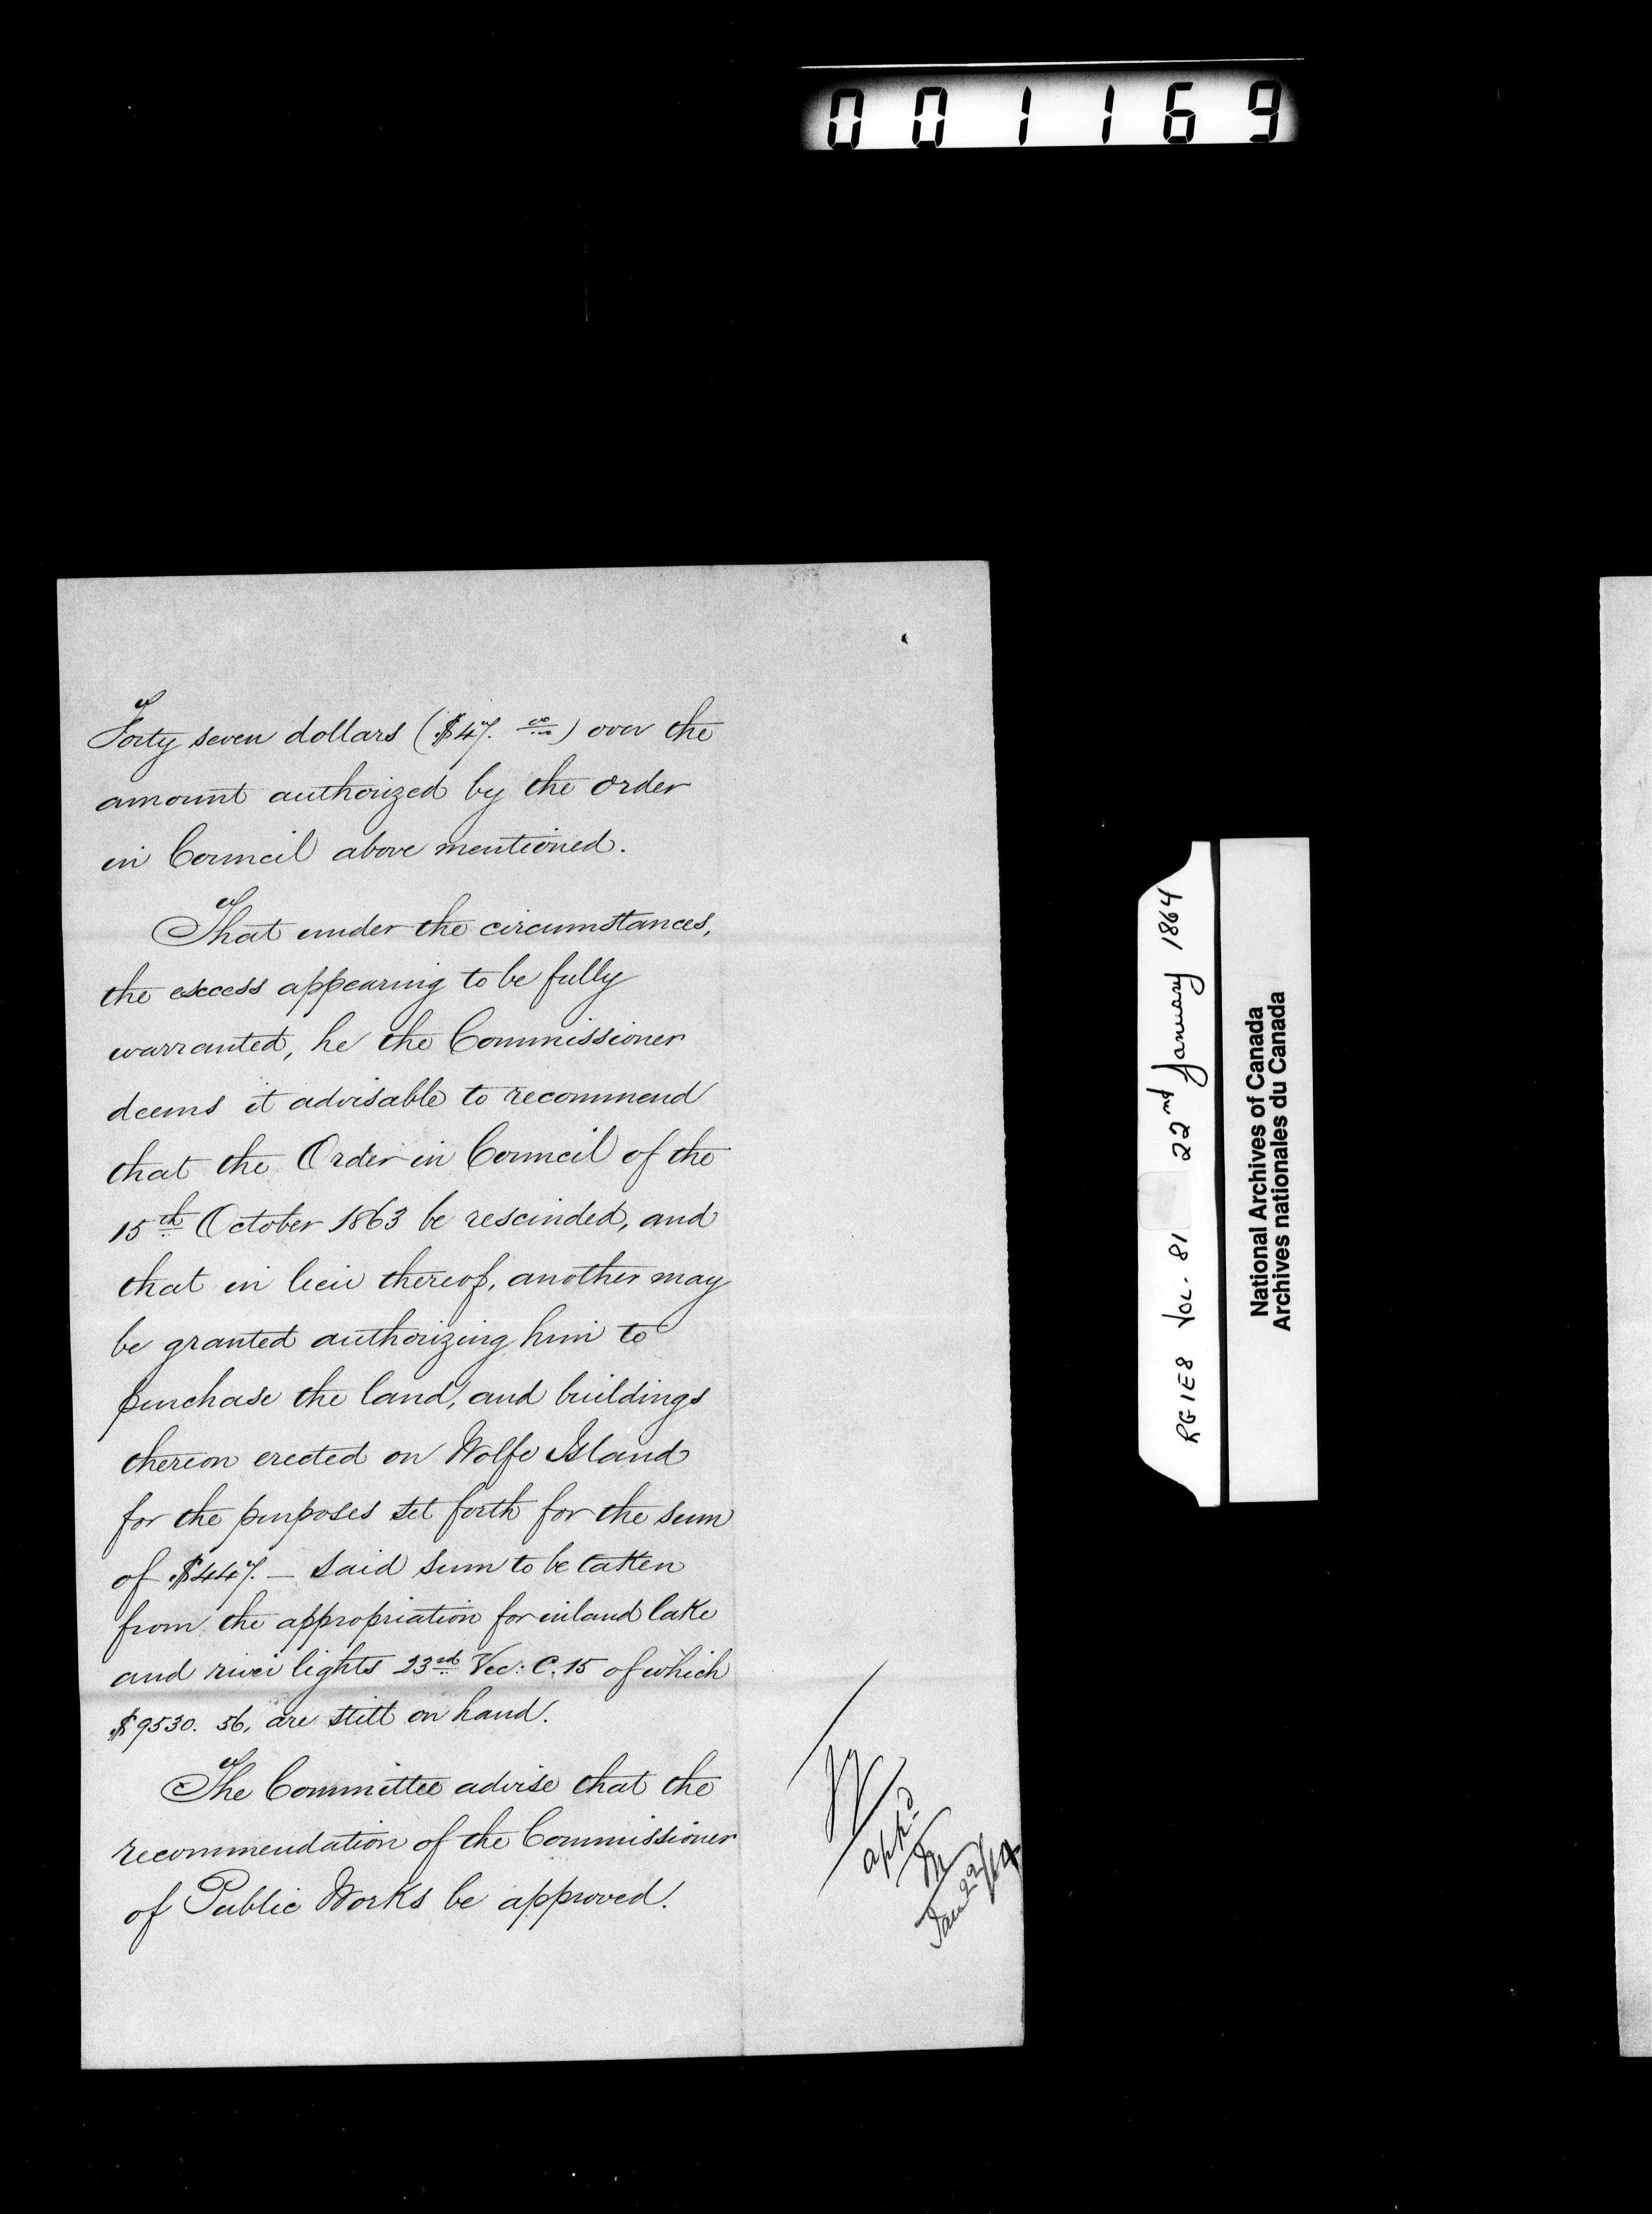 001169
Forty seven dollars ($47. 00) over the
amount authorized by the order
in Council above mentioned.
That under the circumstances,
the excess appearing to be fully
warranted, he the Commissioner
deems it advisable to recommend
that the Order in Council of the
15th October 1863 be rescinded, and
that in lieu thereof, another may
be granted authorizing him to
purchase the land, and buildings
thereon erected on Wolfe Island
for the purposes set forth for the sum
of $447. — said sum to be taken
from the appropriation for inland lake
and river lights 23rd Vec: C. 15 of which
$9530. 56, are still on hand.
The Committee advise that the
recommendation of the Commissioner
of Public Works be approved.
appd
M
Jan 22/64
RG1E8 VOL. 81 22nd January 1864
National Archives of Canada
Archives nationales du Canada